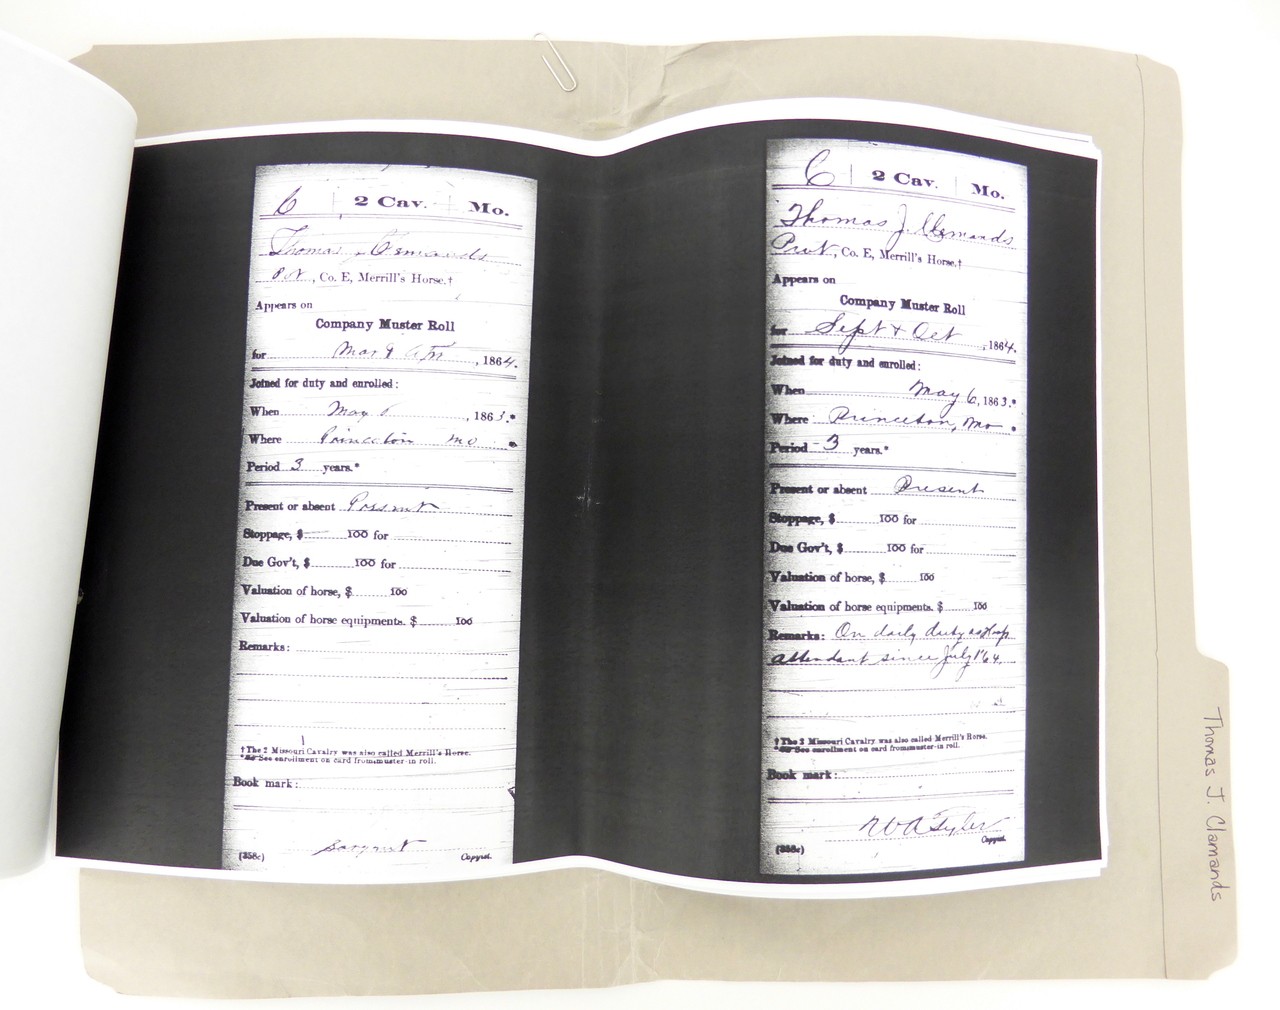 C | 2 Cav. | Mo.
Thomas J. Clemands
Pvt, Co. E, Merrill's Horse.†
Appears on
Company Muster Roll
for Mar & , 1864.
Joined for duty and enrolled:
When May 6, 1863.*
Where Princeton Mo *
Period 3 years.*
Present or absent Present
Stoppage, $ 100 for
Due Gov't, $ 100 for
Valuation of horse, $ 100
Valuation of horse equipments. $ 100
Remarks:
†The 2 Missouri Cavalry was also called Merrill's Horse.
* See enrollment on card from muster-in roll.
Book mark:
Sargent
(358c) Copyist.
C | 2 Cav. | Mo.
Thomas J. Clemands
Pvt, Co. E, Merrill's Horse.†
Appears on
Company Muster Roll
for Sept & Oct , 1864.
Joined for duty and enrolled:
When May 6, 1863.*
Where Princeton, Mo *
Period 3 years.*
Present or absent Present
Stoppage, $ 100 for
Due Gov't, $ 100 for
Valuation of horse, $ 100
Valuation of horse equipments. $ 100
Remarks: On daily duty as Hosp.
attendant since July 1 '64.
†The 2 Missouri Cavalry was also called Merrill's Horse.
* See enrollment on card from muster-in roll.
Book mark:
Tyler
(358c) Copyist.
Thomas J. Clamands